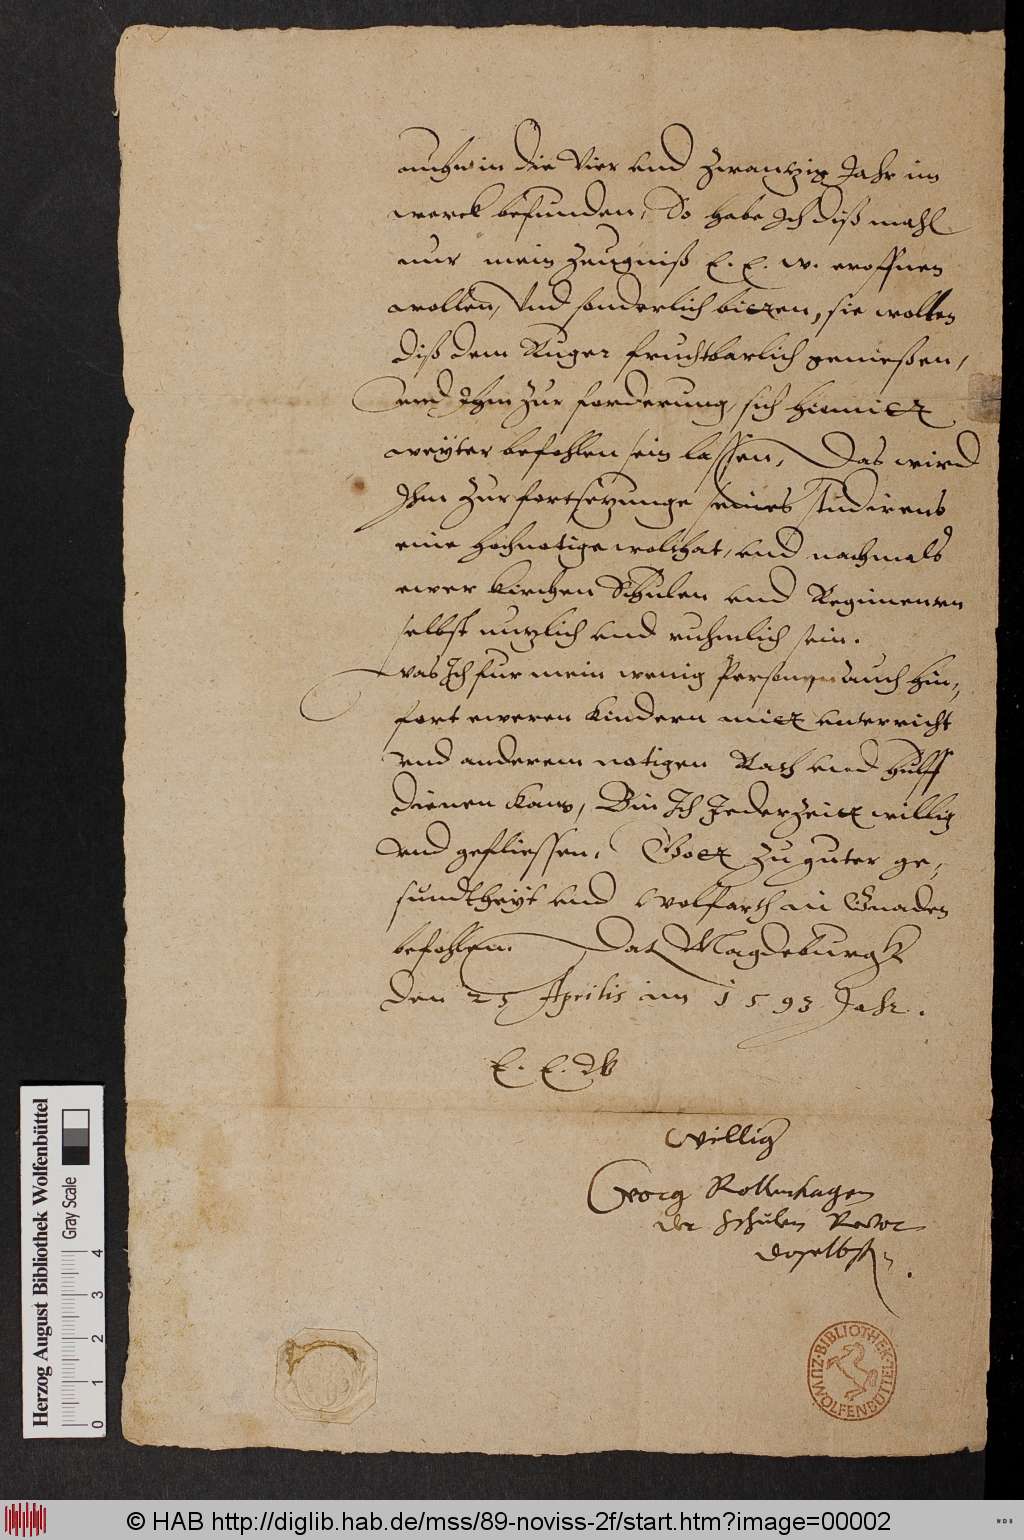 nuhn in die Vier und Zwantzig Jahr im
werck befunden, So habe Ich diß mahl
nur mein Zeugniß E. E. W. eroffnen
wollen, Vnd sonderlich bitten, sie wolten
diß dem Kuger fruchtbarlich genießen,
vnd Ihm zur forderung, sich hiemitt
weÿter befohlen sein lassen, Das wird
Ihm zur fortsetzunge seines studirens
eine hochnotige wolthat, vnd nachmals
ewer Kirchen Schulen vnd Regimenten
selbst nutzlich vnd ruhmlich sein.
was Ich fur mein wenig Person auch hin-
fort eweren Kindern mitt vnterricht
vnd anderem notigen Rath vnd hulff
dienen kann, Bin Ich Jederzeitt willig
vnd geflissen, Gott zu guter ge-
sundtheÿt vnd wolfarth in Gnaden
befohlen. Dat Magdeburgk
den 25 Aprilis im 1593 Jahr.
E. E. W
williger
Georg Rollenhagen
der Schulen Rector
doselbst.
HERZOG·BIBLIOTHEK·ZU WOLFENBÜTTEL
Herzog August Bibliothek Wolfenbüttel
Gray Scale
0 1 2 3 4
© HAB http://diglib.hab.de/mss/89-noviss-2f/start.htm?image=00002